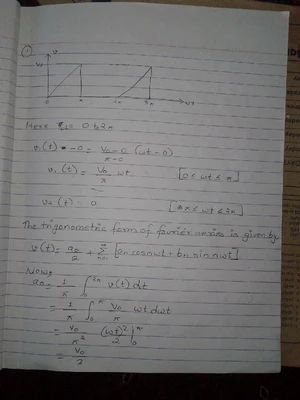 ①
v
V₀
0 π 2π 3π ωt
Here 0 to 2π
v₁(t) - 0 = V₀-0/π-0 (ωt-0)
v₁(t) = V₀/π ωt [0 ≤ ωt ≤ π]
v₂(t) = 0 [π ≤ ωt ≤ 2π]
The trigonometric form of fourier series is given by
v(t) = a₀/2 + Σ [an cos nωt + bn sin nωt]
Now,
a₀ = 1/π ∫₀^2π v(t) dt
= 1/π ∫₀^π V₀/π ωt dωt
= V₀/π² (ωt)²/2 |₀^π
= V₀/2